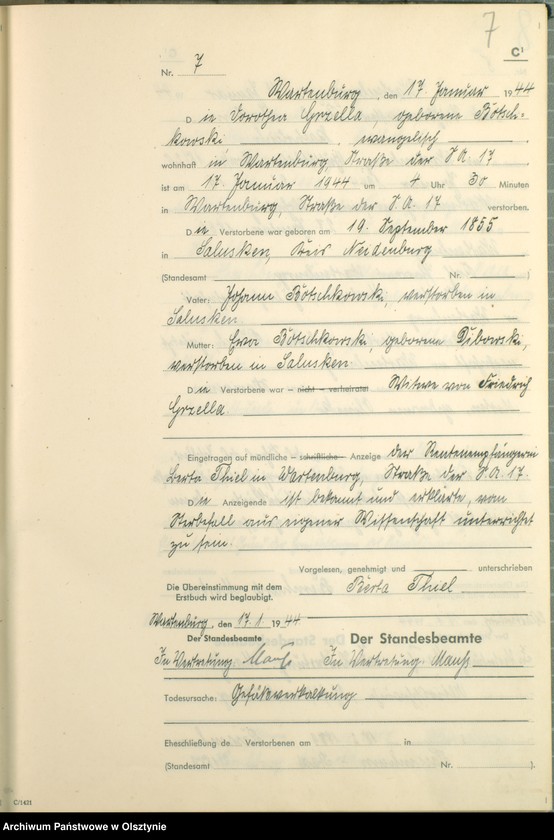 7
C¹
Nr. 7
Wartenburg, den 17. Januar 1944
Die Dorothea Grzella, geborene Bötsch-
kowski, evangelisch
wohnhaft in Wartenburg, Straße der S.A. 17
ist am 17. Januar 1944 um 4 Uhr 30 Minuten
in Wartenburg, Straße der S.A. 17 verstorben.
Die Verstorbene war geboren am 19. September 1855
in Salusken, Kreis Neidenburg
(Standesamt Nr. )
Vater: Johann Bötschkowski, verstorben in
Salusken
Mutter: Ewa Bötschkowski, geborene Dibowski,
verstorben in Salusken.
Die Verstorbene war – nicht – verheiratet Witwe von Friedrich
Grzella
Eingetragen auf mündliche – schriftliche – Anzeige der Rentenempfängerin
Berta Thiel in Wartenburg, Straße der S.A. 17.
Die Anzeigende ist bekannt und erklärte, vom
Sterbefall aus eigener Wissenschaft unterrichtet
zu sein.
Vorgelesen, genehmigt und unterschrieben
Die Übereinstimmung mit dem
Erstbuch wird beglaubigt.
Berta Thiel
Wartenburg, den 17.1. 1944
Der Standesbeamte Der Standesbeamte
In Vertretung: In Vertretung:
Todesursache: Gefäßverkalkung
Eheschließung de Verstorbenen am in
(Standesamt Nr. ).
C/1431
Archiwum Państwowe w Olsztynie